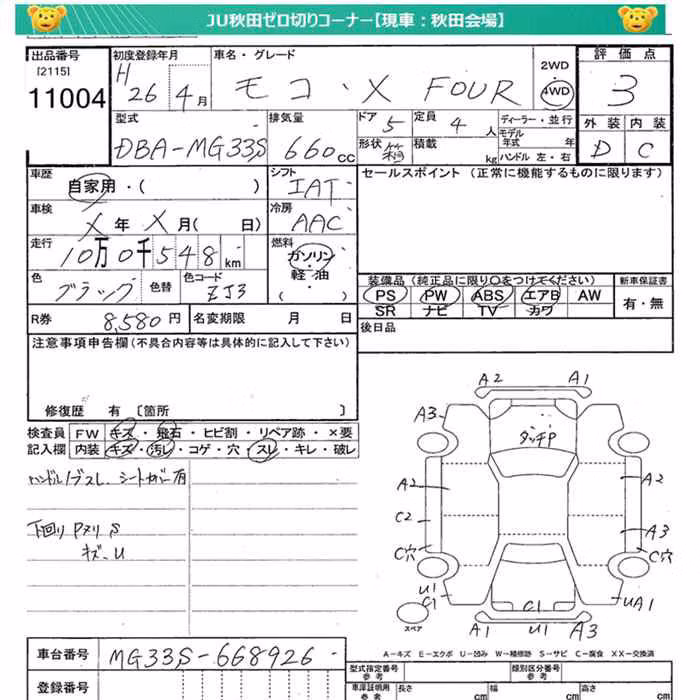 JU秋田ゼロ切りコーナー【現車：秋田会場】
出品番号 初度登録年月 車名・グレード 2WD 評価点
[2115] H 26年 4月 モコ・X FOUR 4WD 3
11004
型式 排気量 ドア 5 定員 4人 ディーラー・並行 外装 内装
DBA-MG33S 660cc 形状 積載 kg モデル年式 年 D C
ハンドル 左・右
車歴 シフト セールスポイント（正常に機能するものに限ります）
自家用・( ) IAT
車検 冷房
X年X月( 日) AAC
走行 燃料
10万0千548km ガソリン・
軽・油
色 色替 色コード ( ) 装備品（純正品に限り○をつけてください） 新車保証書
ブラック ZJ3 PS PW ABS エアB AW 有・無
SR ナビ TV カワ
R券 8,580円 名変期限 月 日 後日品
注意事項申告欄（不具合内容等は具体的に記入して下さい）
修復歴 有 [箇所 ]
検査員 FW キズ・飛石・ヒビ割・リペア跡・×要
記入欄 内装 キズ・汚レ・コゲ・穴・スレ・キレ・破レ
ハンドルノブスレ、シートカバー有
下回り Pヌリ S
キズ、U
A2 A1
A3
タッチP
A2 A2
C2 A3
C穴 C穴
U1 C1 C1 UA1
スペア A1 U1 A3
A－キズ E－エクボ U－凹み W－補修跡 S－サビ C－腐食 XX－交換済
車台番号 MG33S-668926
型式指定番号 参考 類別区分番号 参考
登録番号 車庫証明用 参考 長さ cm 幅 cm 高さ cm